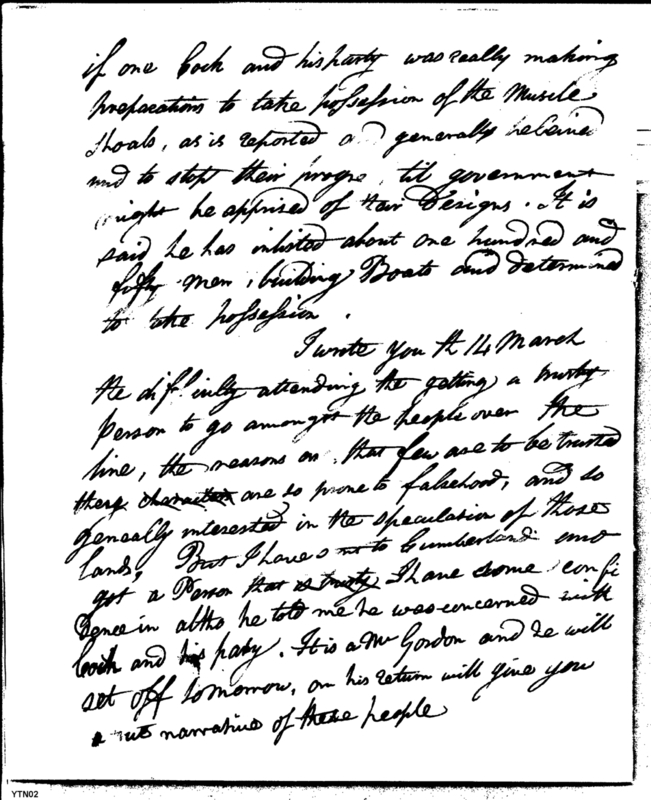 if one Cock and his party was really making
preparations to take possession of the Muscle
Shoals, as is reported and generally believed
and to stop their progre til government
might be apprised of their Designs. It is
said he has inlisted about one hundred and
fifty men, building Boats and determined
to take possession.
I wrote you th 14 March
the difficulty attending the getting a trusty
Person to go amongst the people over the
line, the reasons are that few are to be trusted
there characters are so prone to falsehood, and so
generally interested in the speculation of those
lands, But I have sent to Cumberland and
got a Person that is trusty I have some confi
dence in altho he told me he was concerned with
Cock and his party. It is a Mr Gordon and he will
set off tomorrow, on his return will give you
a narrative of these people
YTN02